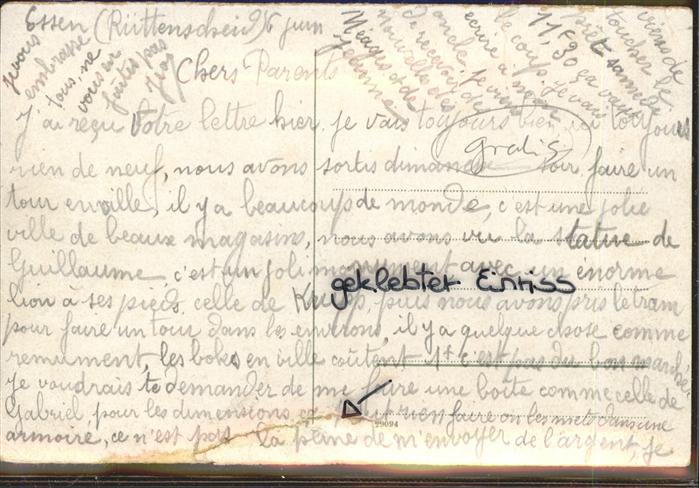 Essen (Rüttenscheid) 6 juin
Chers Parents
J'ai reçu votre lettre hier, je vais toujours bien, ici toujours
rien de neuf, nous avons sortis dimanche soir faire un
tour en ville, il y a beaucoup de monde, c'est une jolie
ville de beaux magasins, nous avons vu la statue de
Guillaume, c'est un joli monument avec un énorme
lion à ses pieds, celle de Krupp, puis nous avons pris le tram
pour faire un tour dans les environs, il y a quelque chose comme
remument, les boks en ville coûtent 1f c'est pas du bon marché.
Je voudrais te demander de me faire une boîte comme celle de
Gabriel pour les dimensions rien faire on les met dans une
armoire, ce n'est pas la peine de m'envoyer de l'argent, je
viens de
toucher le
prêt samedi
11,30 ça vaut
le coup, je vais
écrire à mon
oncle, je viens
de recevoir de
nouvelles de
Meages et de
Jérôme
Je vous
embrasse
tous, ne
vous en
faites pas
gratis
geklebter Einriss
29094